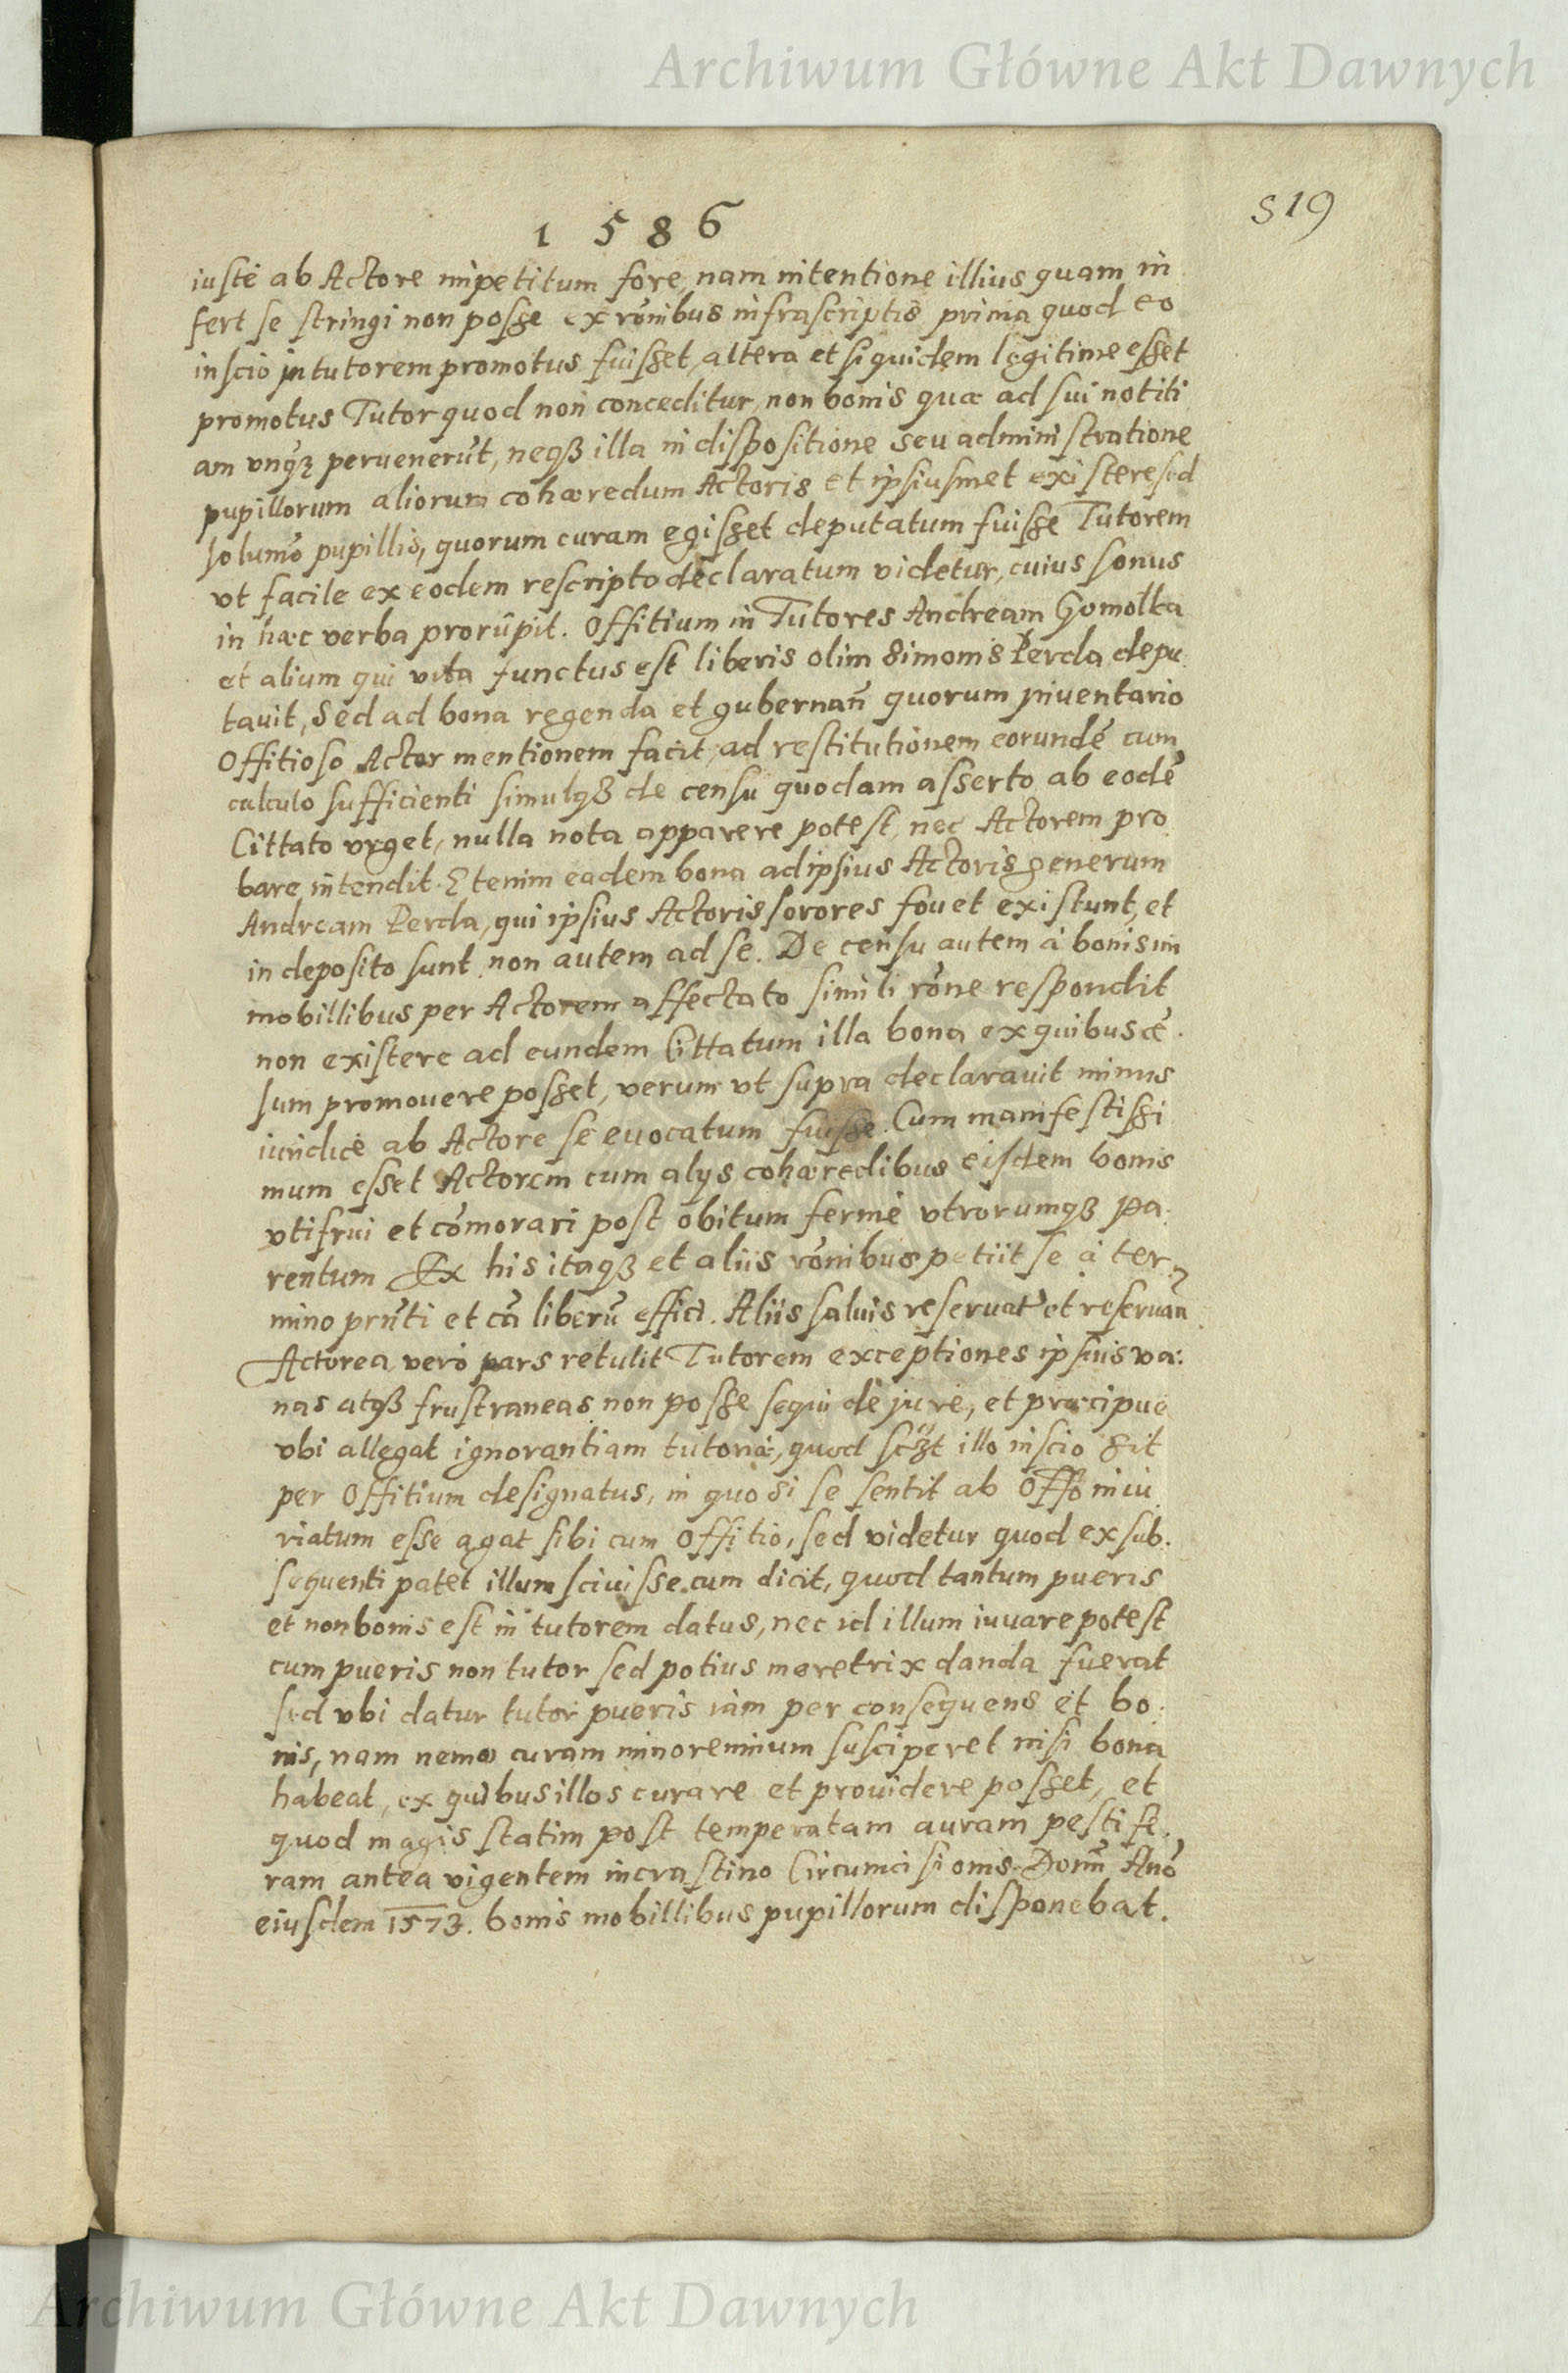 Archiwum Główne Akt Dawnych
519
1 5 8 6
iustè ab Actore impetitum fore, nam intentione illius quam in
fert se stringi non posse ex rõnibus infrascriptis prima quod eo
inscio in tutorem promotus fuisset, altera et siquidem legitime esset
promotus Tutor quod non conceditur, non bonis quæ ad sui notiti
am vnq̃ȝ peruenerũt, neqȝ illa in dispositione seu administratione
pupillorum aliorum cohæredum Actoris et ipsiusmet existere sed
solumõ pupillis, quorum curam egisset deputatum fuisse Tutorem
vt facile ex eodem rescripto declaratum videtur, cuius sonus
in hæc verba prorũpit. Offitium in Tutores Andream Gomolka
et alium qui vita functus est liberis olim Simonis Perda depu
tauit, Sed ad bona regenda et gubernañ quorum inuentario
Offitioso Actor mentionem facit, ad restitutionem eorundẽ cum
calculo sufficienti simulqȝ de censu quodam asserto ab eodẽ
Cittato vrget, nulla nota apparere potest, nec Actorem pro
bare intendit. Etenim eadem bona ad ipsius Actoris generum
Andream Perda, qui ipsius Actoris sorores fouet existunt, et
in deposito sunt, non autem ad se. De censu autem à bonis im
mobillibus per Actorem affectato simili rõne respondit
non existere ad eundem Cittatum illa bona ex quibus cẽ.
sum promouere posset, verum vt supra declarauit minus
iuridicè ab Actore se euocatum fuisse. Cum manifestissi
mum esset Actorem cum alys cohæredibus eisdem bonis
vti frui et cõmorari post obitum fermè vtrorumqȝ pa.
rentum Ex his itaqȝ et aliis rõnibus petiit se à ter
mino prñti et cã liberũ effici. Aliis saluis reseruat̃ et reseruañ.
Actorea verò pars retulit Tutorem exceptiones ipsius va:
nas atqȝ frustraneas non posse sequi de jure, et præcipue
vbi allegat ignorantiam tutoriæ, quod sczt illo inscio sit
per Offitium designatus, in quo si se sentit ab Offõ iniu
riatum esse agat sibi cum Offitio, sed videtur quod ex sub.
sequenti patet illum sciuisse cum dicit, quod tantum pueris
et non bonis est in tutorem datus, nec id illum iuuare potest
cum pueris non tutor sed potius meretrix danda fuerat
sed vbi datur tutor pueris iàm per consequens et bo.
nis, nam nemo curam minorennium susciperet nisi bona
habeat, ex quibus illos curare et prouidere posset, et
quod magis statim post temperatam auram pestife.
ram antea vigentem in crastino Circumcisionis Domñ Anõ
eiusdem 1573. bonis mobillibus pupillorum disponebat.
Archiwum Główne Akt Dawnych